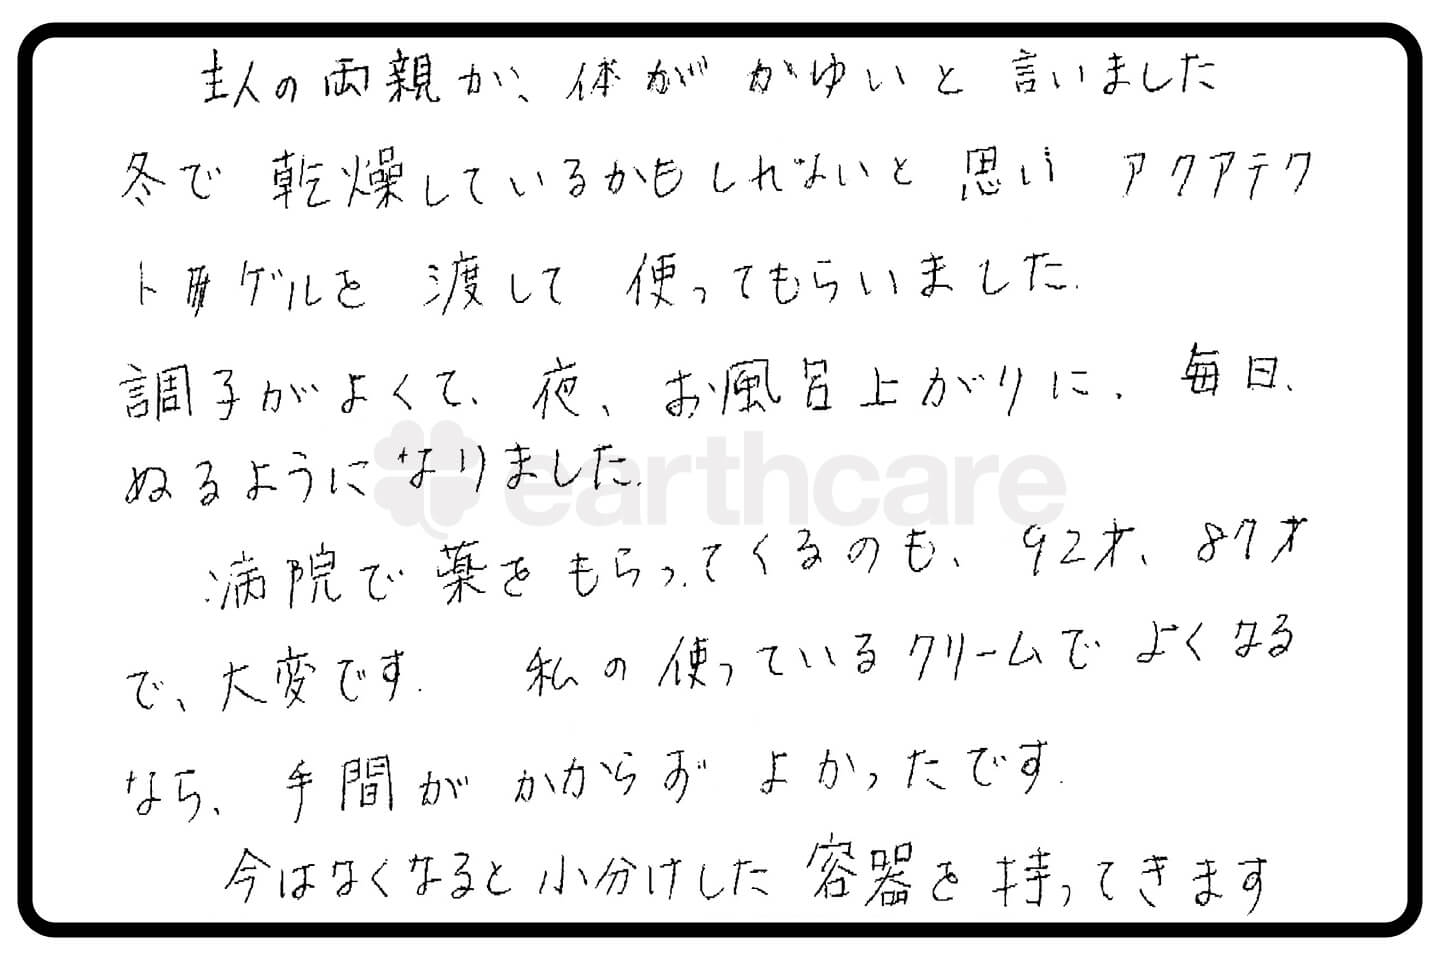 主人の両親が、体が かゆいと 言いました
冬で 乾燥しているかもしれないと 思い アクアテク
トゲルを 渡して 使ってもらいました.
調子がよくて、夜、お風呂上がりに、毎日、
ぬるようになりました.
earthcare
病院で薬をもらってくるのも、92才、87才
で、大変です. 私の使っているクリームで よくなる
なら、手間が かからず よかったです.
今はなくなると小分けした 容器を持ってきます